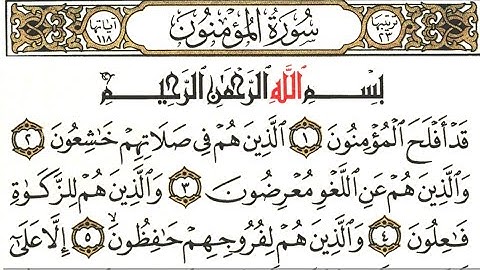 ترتيبها ٢٣ سُورَةُ المُؤْمِنُون آياتها ١١٨
بِسْمِ اللَّهِ الرَّحْمَٰنِ الرَّحِيمِ
قَدْ أَفْلَحَ الْمُؤْمِنُونَ ١ الَّذِينَ هُمْ فِي صَلَاتِهِمْ خَٰشِعُونَ ٢
وَالَّذِينَ هُمْ عَنِ اللَّغْوِ مُعْرِضُونَ ٣ وَالَّذِينَ هُمْ لِلزَّكَوٰةِ
فَٰعِلُونَ ٤ وَالَّذِينَ هُمْ لِفُرُوجِهِمْ حَٰفِظُونَ ٥ إِلَّا عَلَىٰ